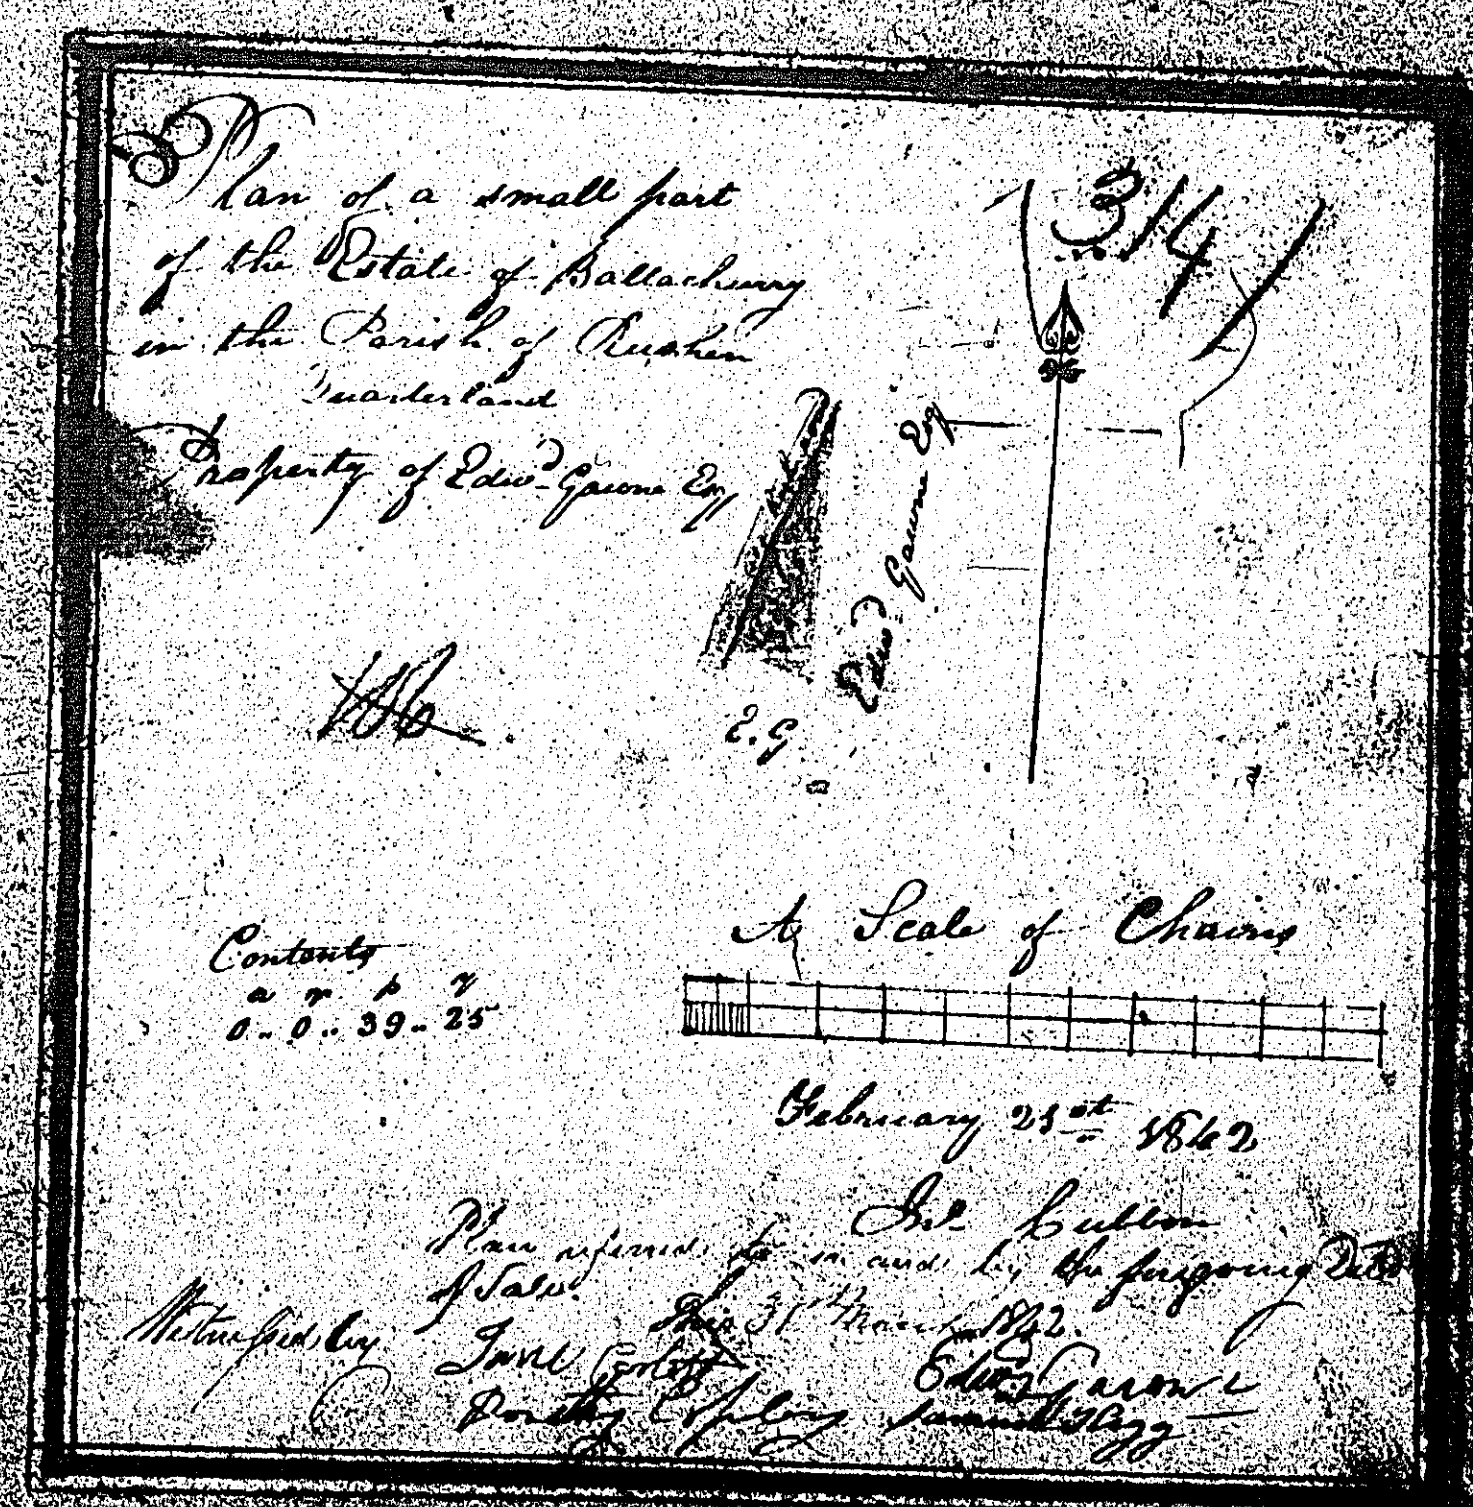 Plan of a small part
of the Estate of Ballachurry
in the Parish of Rushen
Quarterland
Property of Edwd. Gawne Esq
(314)
Edwd. Gawne Esq
E. G
Contents
a r. p y
0.. 0.. 39.. 25
A Scale of Chains
February 21st 1842
Jno. Cubbon
Plan referred to in and by the foregoing Deed
of Sale.
This 31st March 1842.
Witnessed by
Jane
Dorothy
Edwd Gawne
Samuel